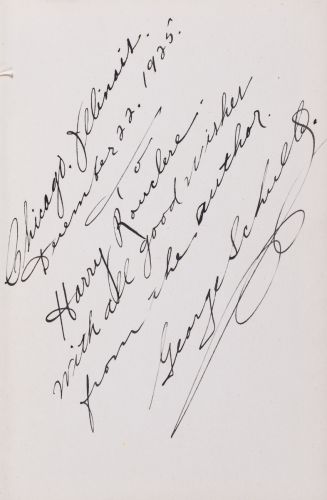 Chicago, Illinois.
December 22. 1925.
To
Harry Rouclere.
with all good wishes
from the author.
George Schulte.